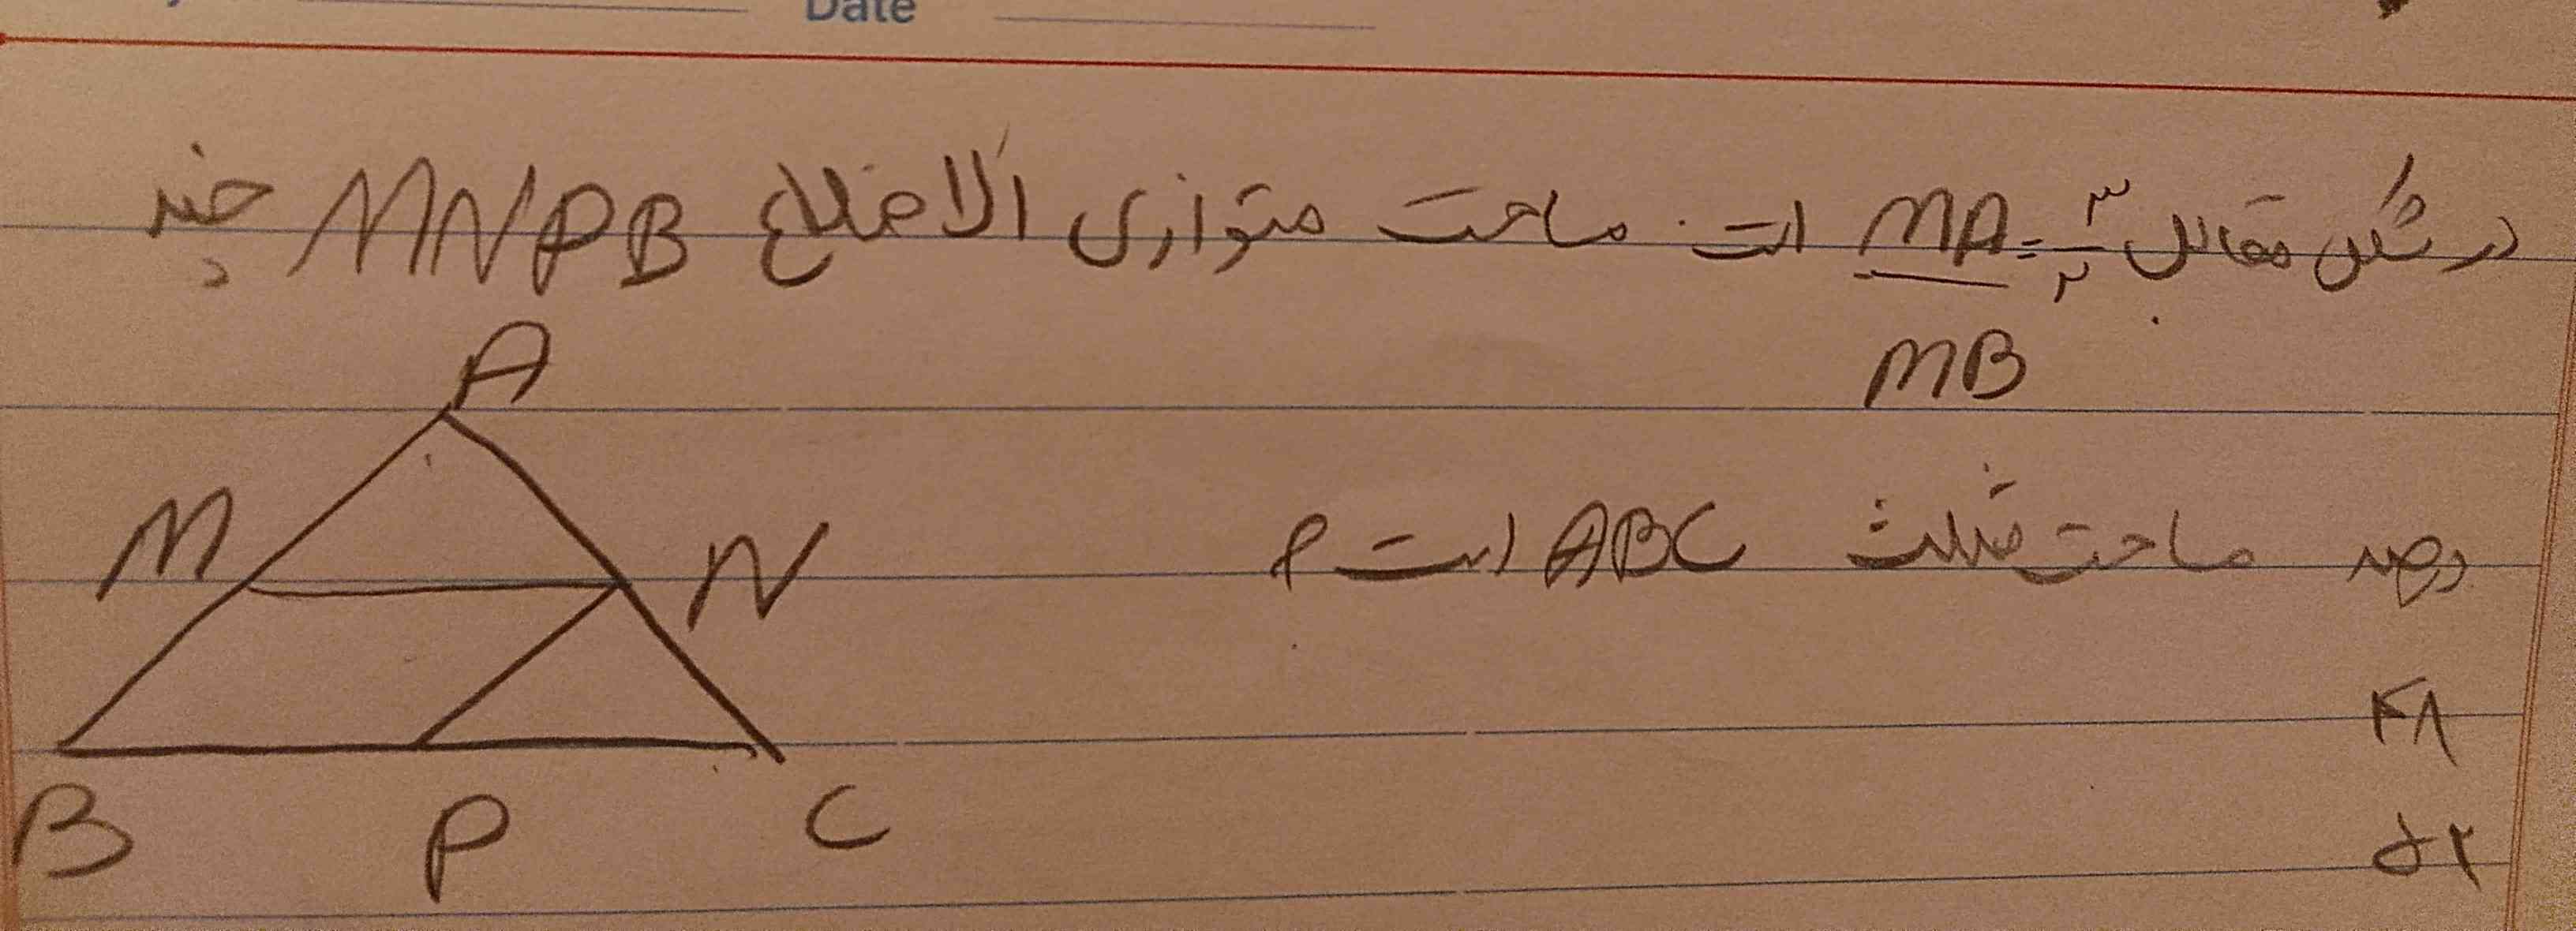 Date
در شکل مقابل ۳/۲ = MA/MB است. مساحت متوازی الاضلاع MNPB چند
درصد مساحت مثلث ABC است؟
A
M N
B P C
۴۸
۵۲